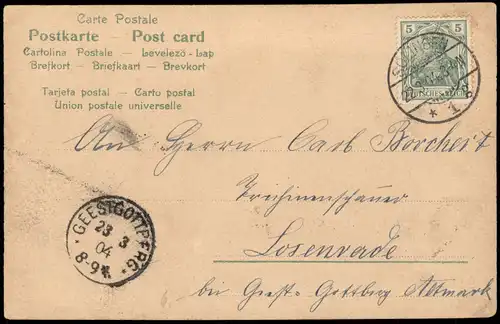 Carte Postale
Postkarte — Post card
Cartolina Postale — Levelezö-Lap
Brefkort — Briefkaart — Brevkort
Tarjeta postal — Carto postal
Union postale universelle
5 5
DEUTSCHES REICH
An Herrn Carl Borchert
Trichinenschauer
Losenrade
bei Geest-Gottberg Altmark
GEESTGOTTBERG
23 3
04
8-9V
* 1 a